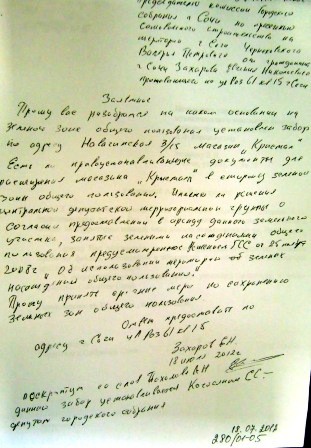 председателю комиссии Городского
собрания г Сочи по
строительства на
территории г Сочи
Валерия Петровича
от гражданина
г Сочи Захарова Николаевича
проживающего на ул Роз 61 кв 15 г Сочи
Заявление
Прошу вас разобраться на каком основании на
зеленой зоне общего пользования установлен забор
по адресу Новагинская 3/15 магазин „Кристал“
Есть ли правоустанавливающие документы для
расширения магазина „Кристал“ в сторону зеленой
зоны общего пользования. Имеется ли решения
депутатской территориальной группы о
согласии предоставлении в аренду данного земельного
участка, занятое зелеными насаждениями общего
пользования предусмотренное ГСС от 25
2008г „Об использовании территории об зеленых
насаждениях общего пользования“
Прошу принять срочные меры по сохранению
Зеленых зон общего пользования
Ответ предоставить по
адресу г Сочи ул Роз 61 кв 15
Захаров Е.Н.
18 июля 2012г
со слов В.Н
данный забор устанавливается СС
депутат городского собрания
18.07.2012
280/01-05